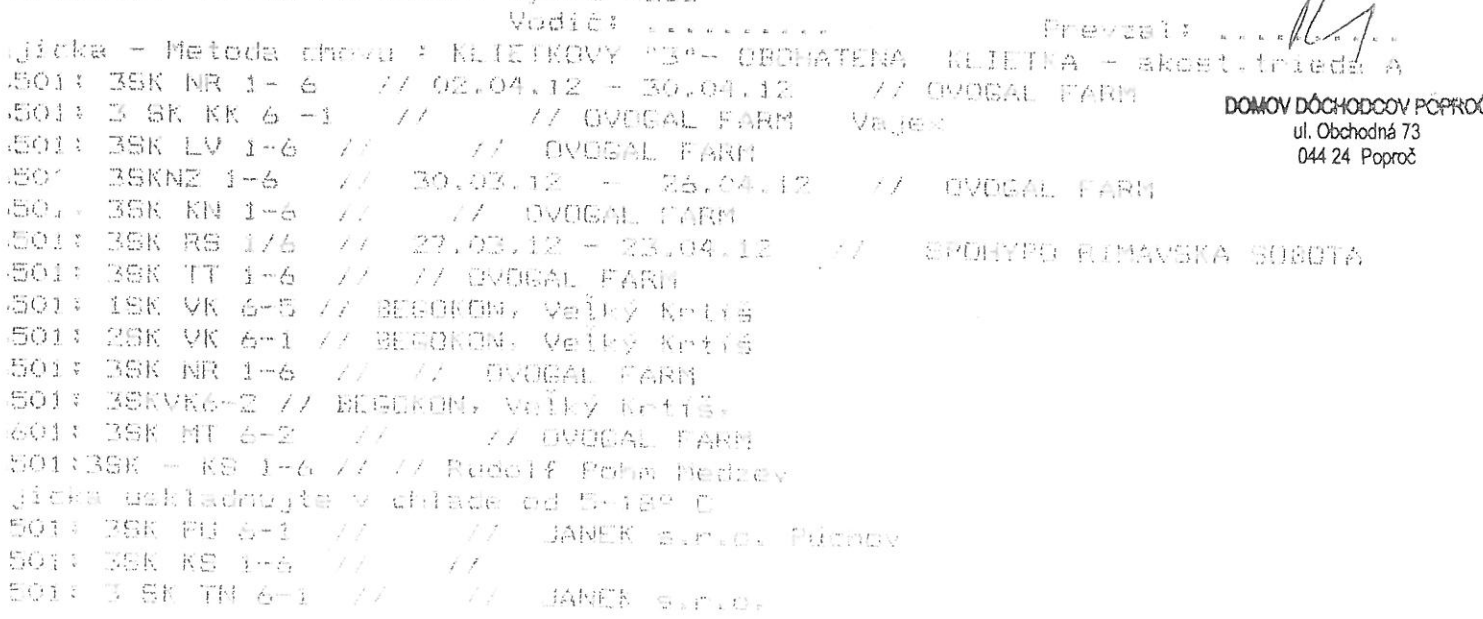 Vodič: .......... Prevzal: ..........
jicka - Metoda chovu : KLIETKOVY "3"- OBOHATENA KLIETKA - akost.trieda A
501: 3SK NR 1- 6 // 02.04.12 - 30.04.12 // OVOGAL FARM
501: 3 SK KK 6 -1 // // OVOGAL FARM Vajex
501: 3SK LV 1-6 // // OVOGAL FARM
50 3SKNZ 1-6 // 30.03.12 - 26.04.12 // OVOGAL FARM
50 3SK KN 1-6 // // OVOGAL FARM
501: 3SK RS 1/6 // 27.03.12 - 23.04.12 // SPOHYPO RIMAVSKA SOBOTA
501: 3SK TT 1-6 // // OVOGAL FARM
501: 1SK VK 6-5 // BEGOKON, Veľký Krtíš
501: 2SK VK 6-1 // BEGOKON, Veľký Krtíš
501: 3SK NR 1-6 // // OVOGAL FARM
501: 3SKVK6-2 // BEGOKON, Veľký Krtíš,
601: 3SK MT 6-2 // // OVOGAL FARM
501:3SK - KS 1-6 // // Rudolf Pohm Medzev
jicka uskladnujte v chlade od 5-18° C
501: 3SK PU 6-1 // // JANEK s.r.o. Púchov
501: 3SK KS 1-6 // //
501: 3 SK TN 6-1 // // JANEK s.r.o.
DOMOV DÔCHODCOV POPROČ
ul. Obchodná 73
044 24 Poproč